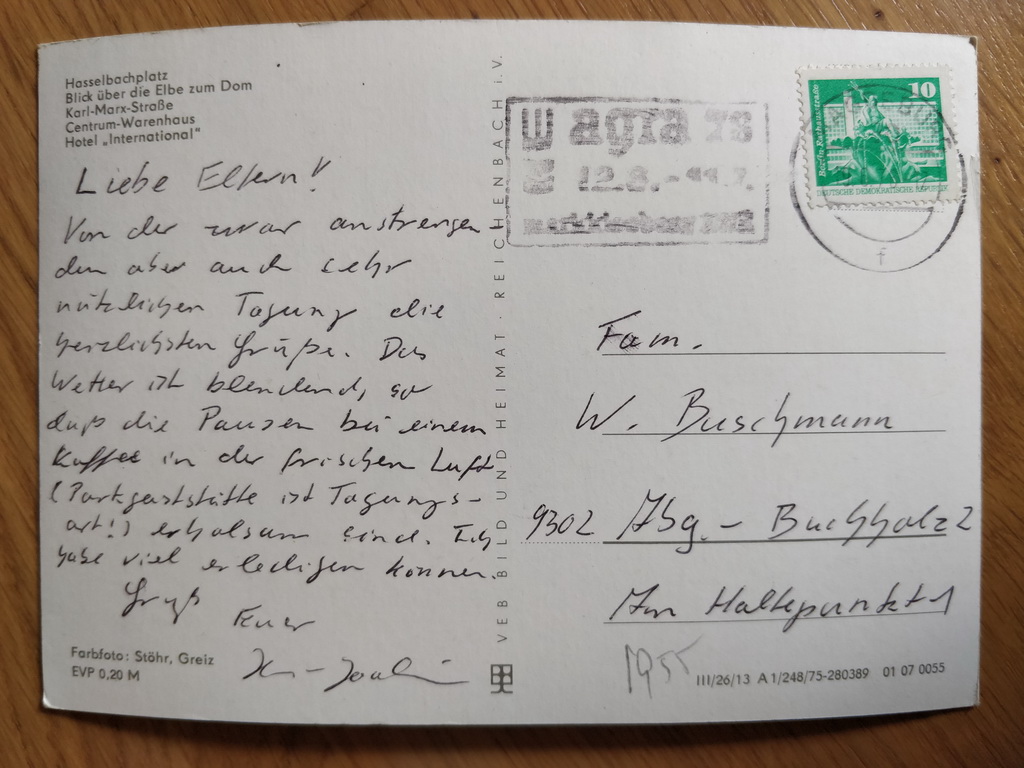 Hasselbachplatz
Blick über die Elbe zum Dom
Karl-Marx-Straße
Centrum-Warenhaus
Hotel „International"
Liebe Eltern!
Von der zwar anstrengen
den aber auch sehr
nützlichen Tagung die
herzlichsten Grüße. Das
Wetter ist blendend, so
daß die Pausen bei einem
Kaffee in der frischen Luft
(Parkgaststätte ist Tagungs-
ort!) erholsam sind. Ich
habe viel erledigen können.
Gruß
Euer
Farbfoto: Stöhr, Greiz
EVP 0,20 M
VEB BILD UND HEIMAT · REICHENBACH I. V.
agra
markkleeberg DDR
10
Berlin-Rathausstraße
DEUTSCHE DEMOKRATISCHE REPUBLIK
f
Fam.
W. Buschmann
9302 Abg.-Buchholz 2
Am Haltepunkt 1
1955
III/26/13 A 1/248/75-280389 01 07 0055